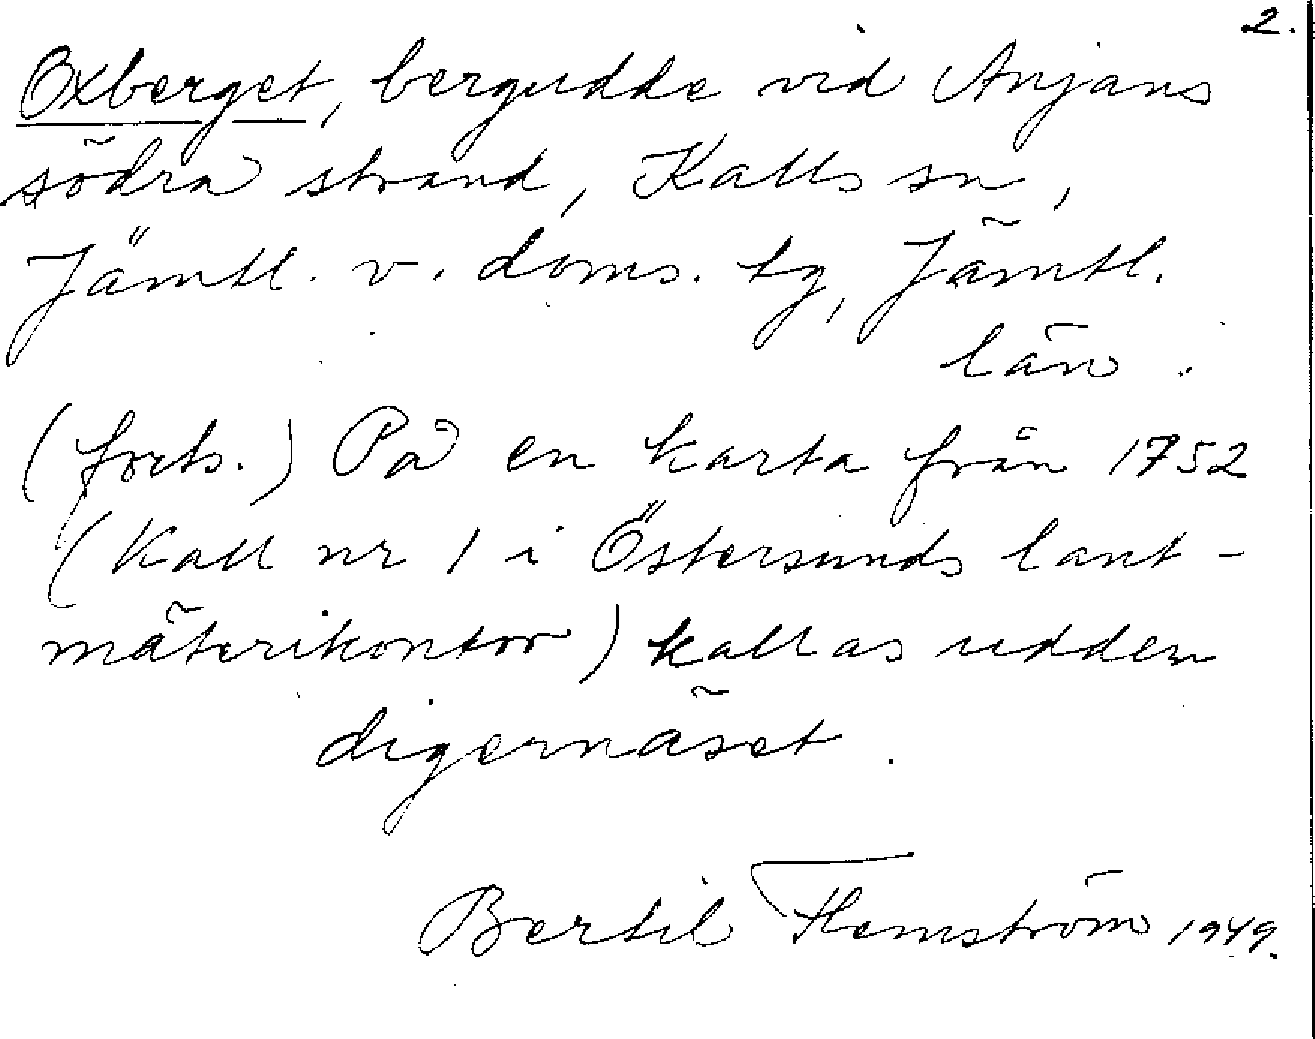 2.
Oxberget, bergudde vid Anjans
södra strand, Kalls sn,
Jämtl. v. doms. tg, Jämtl.
län.
(forts.) På en karta från 1752
(Kall nr 1 i Östersunds lant-
mäterikontor) kallas udden
digernäset.
Bertil Flemström 1949.